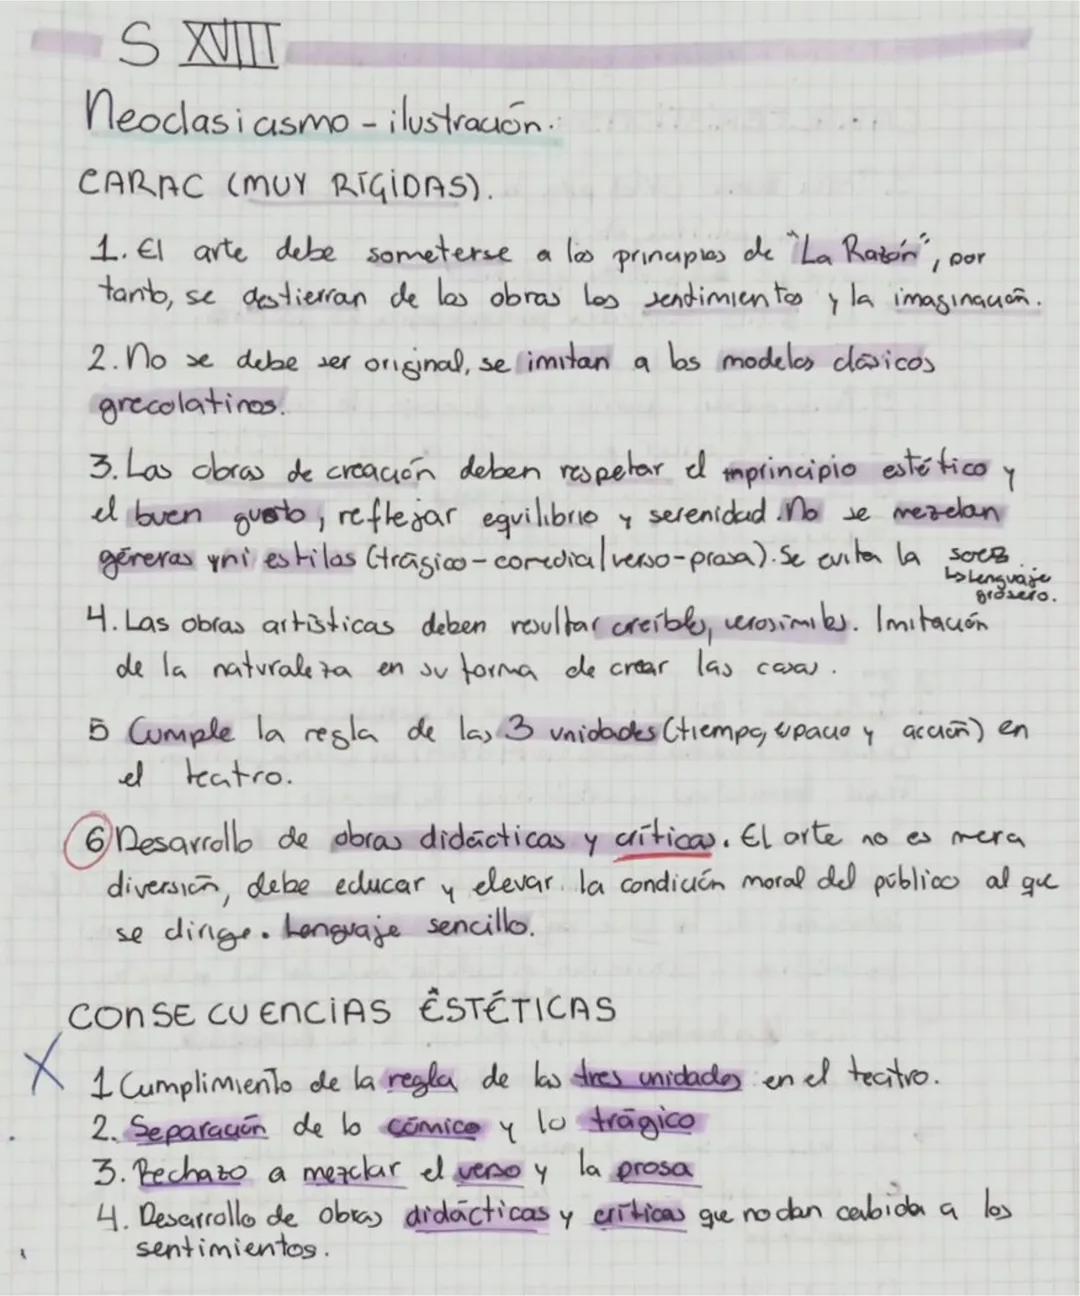 S XVIII
Neoclasiasmo - ilustración.
CARAC (MUY RÍGIDAS).
1. El arte debe someterse a los principios de "La Razón", por
tanto, se destierran de las obras los sentimientos y la imaginación.
2. No se debe ser original, se imitan a los modelos clásicos
grecolatinos.
3. Las obras de creación deben respetar el mprincipio estético y
el buen gusto, reflejar equilibrio y serenidad. No se mezclan
géneros y ni estilos (trágico - comedia / verso - prosa). Se evita la soez
↳ Lenguaje
grosero.
4. Las obras artísticas deben resultar creíbles, verosímiles. Imitación
de la naturaleza en su forma de crear las cosas.
5 Cumple la regla de las 3 unidades (tiempo, espacio y acción) en
el teatro.
6 Desarrollo de obras didácticas y críticas. El arte no es mera
diversión, debe educar y elevar la condición moral del público al que
se dirige. Lenguaje sencillo.
CONSECUENCIAS ESTÉTICAS
X
1 Cumplimiento de la regla de las tres unidades en el teatro.
2. Separación de lo cómico y lo trágico
3. Rechazo a mezclar el verso y la prosa
4. Desarrollo de obras didácticas y críticas que no dan cabida a los
sentimientos.